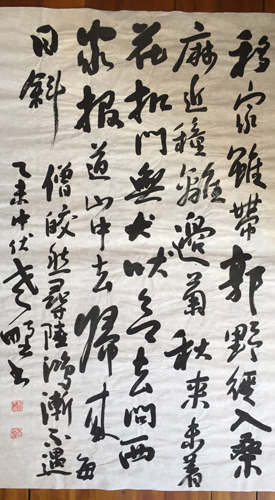 移家雖帶郭野徑入桑
麻近種籬邊菊秋來未着
花扣門無犬吠欲去問西
家報道山中去歸來每
日斜 僧皎然尋陸鴻漸不遇
乙未中伏 書